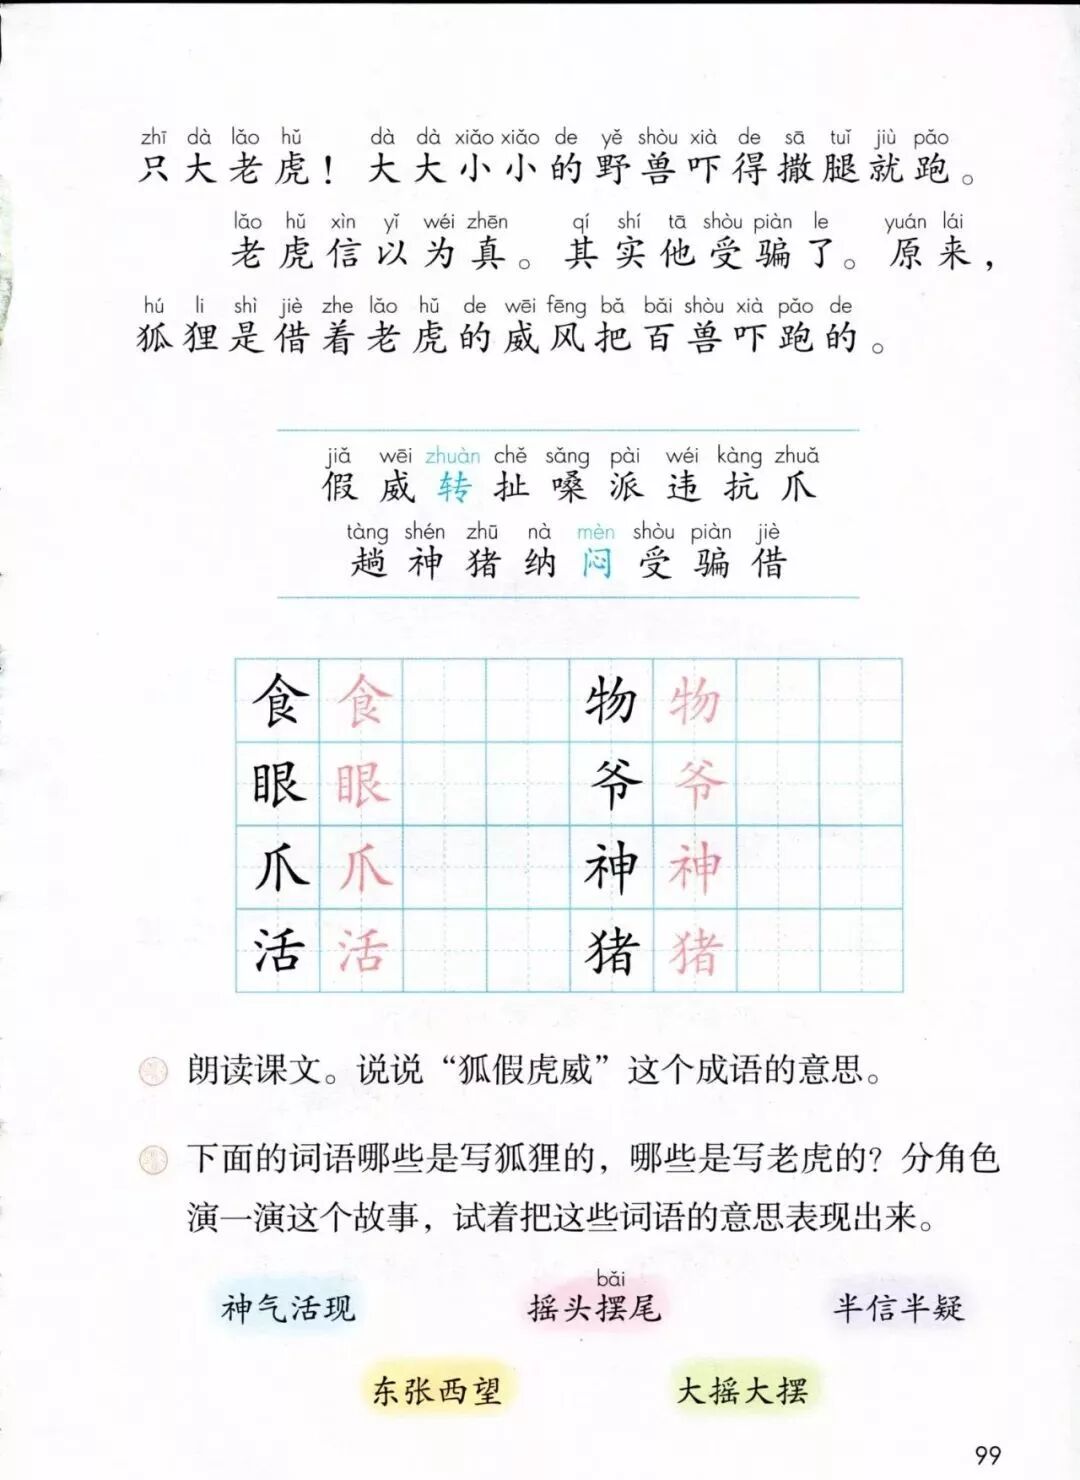 zhī dà lǎo hǔ dà dà xiǎo xiǎo de yě shòu xià de sā tuǐ jiù pǎo
只大老虎！大大小小的野兽吓得撒腿就跑。
lǎo hǔ xìn yǐ wéi zhēn qí shí tā shòu piàn le yuán lái
老虎信以为真。其实他受骗了。原来，
hú li shì jiè zhe lǎo hǔ de wēi fēng bǎ bǎi shòu xià pǎo de
狐狸是借着老虎的威风把百兽吓跑的。
jiǎ wēi zhuàn chě sǎng pài wéi kàng zhuǎ
假威转扯嗓派违抗爪
tàng shén zhū nà mèn shòu piàn jiè
趟神猪纳闷受骗借
食 食 物 物
眼 眼 爷 爷
爪 爪 神 神
活 活 猪 猪
朗读课文。说说“狐假虎威”这个成语的意思。
下面的词语哪些是写狐狸的，哪些是写老虎的？分角色
演一演这个故事，试着把这些词语的意思表现出来。
bǎi
神气活现 摇头摆尾 半信半疑
东张西望 大摇大摆
99